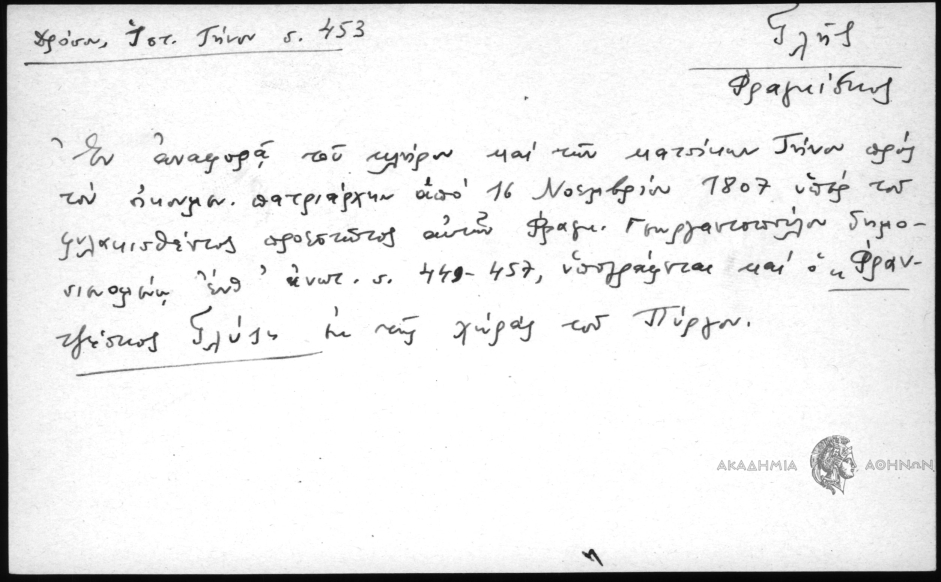 Δρόσου, Ἱστ. Τήνου σ. 453
Γλῆς
Φραγκίσκος
Ἐν ἀναφορᾷ τοῦ κλήρου καί τῶν κατοίκων Τήνου πρός
τόν οἰκουμεν. πατριάρχην ἀπό 16 Νοεμβρίου 1807 ὑπέρ τοῦ
φυλακισθέντος προεστῶτος αὐτῶν Φραγκ. Γεωργαντοπούλου δημο-
σιευομένῃ ἔνθ' ἀνωτ. σ. 449-457, ὑπογράφεται καί ὁ "Φραν-
τζέσκος Γλύζη ἐκ τῆς χώρας τοῦ Πύργου.
ΑΚΑΔΗΜΙΑ ΑΘΗΝΩΝ